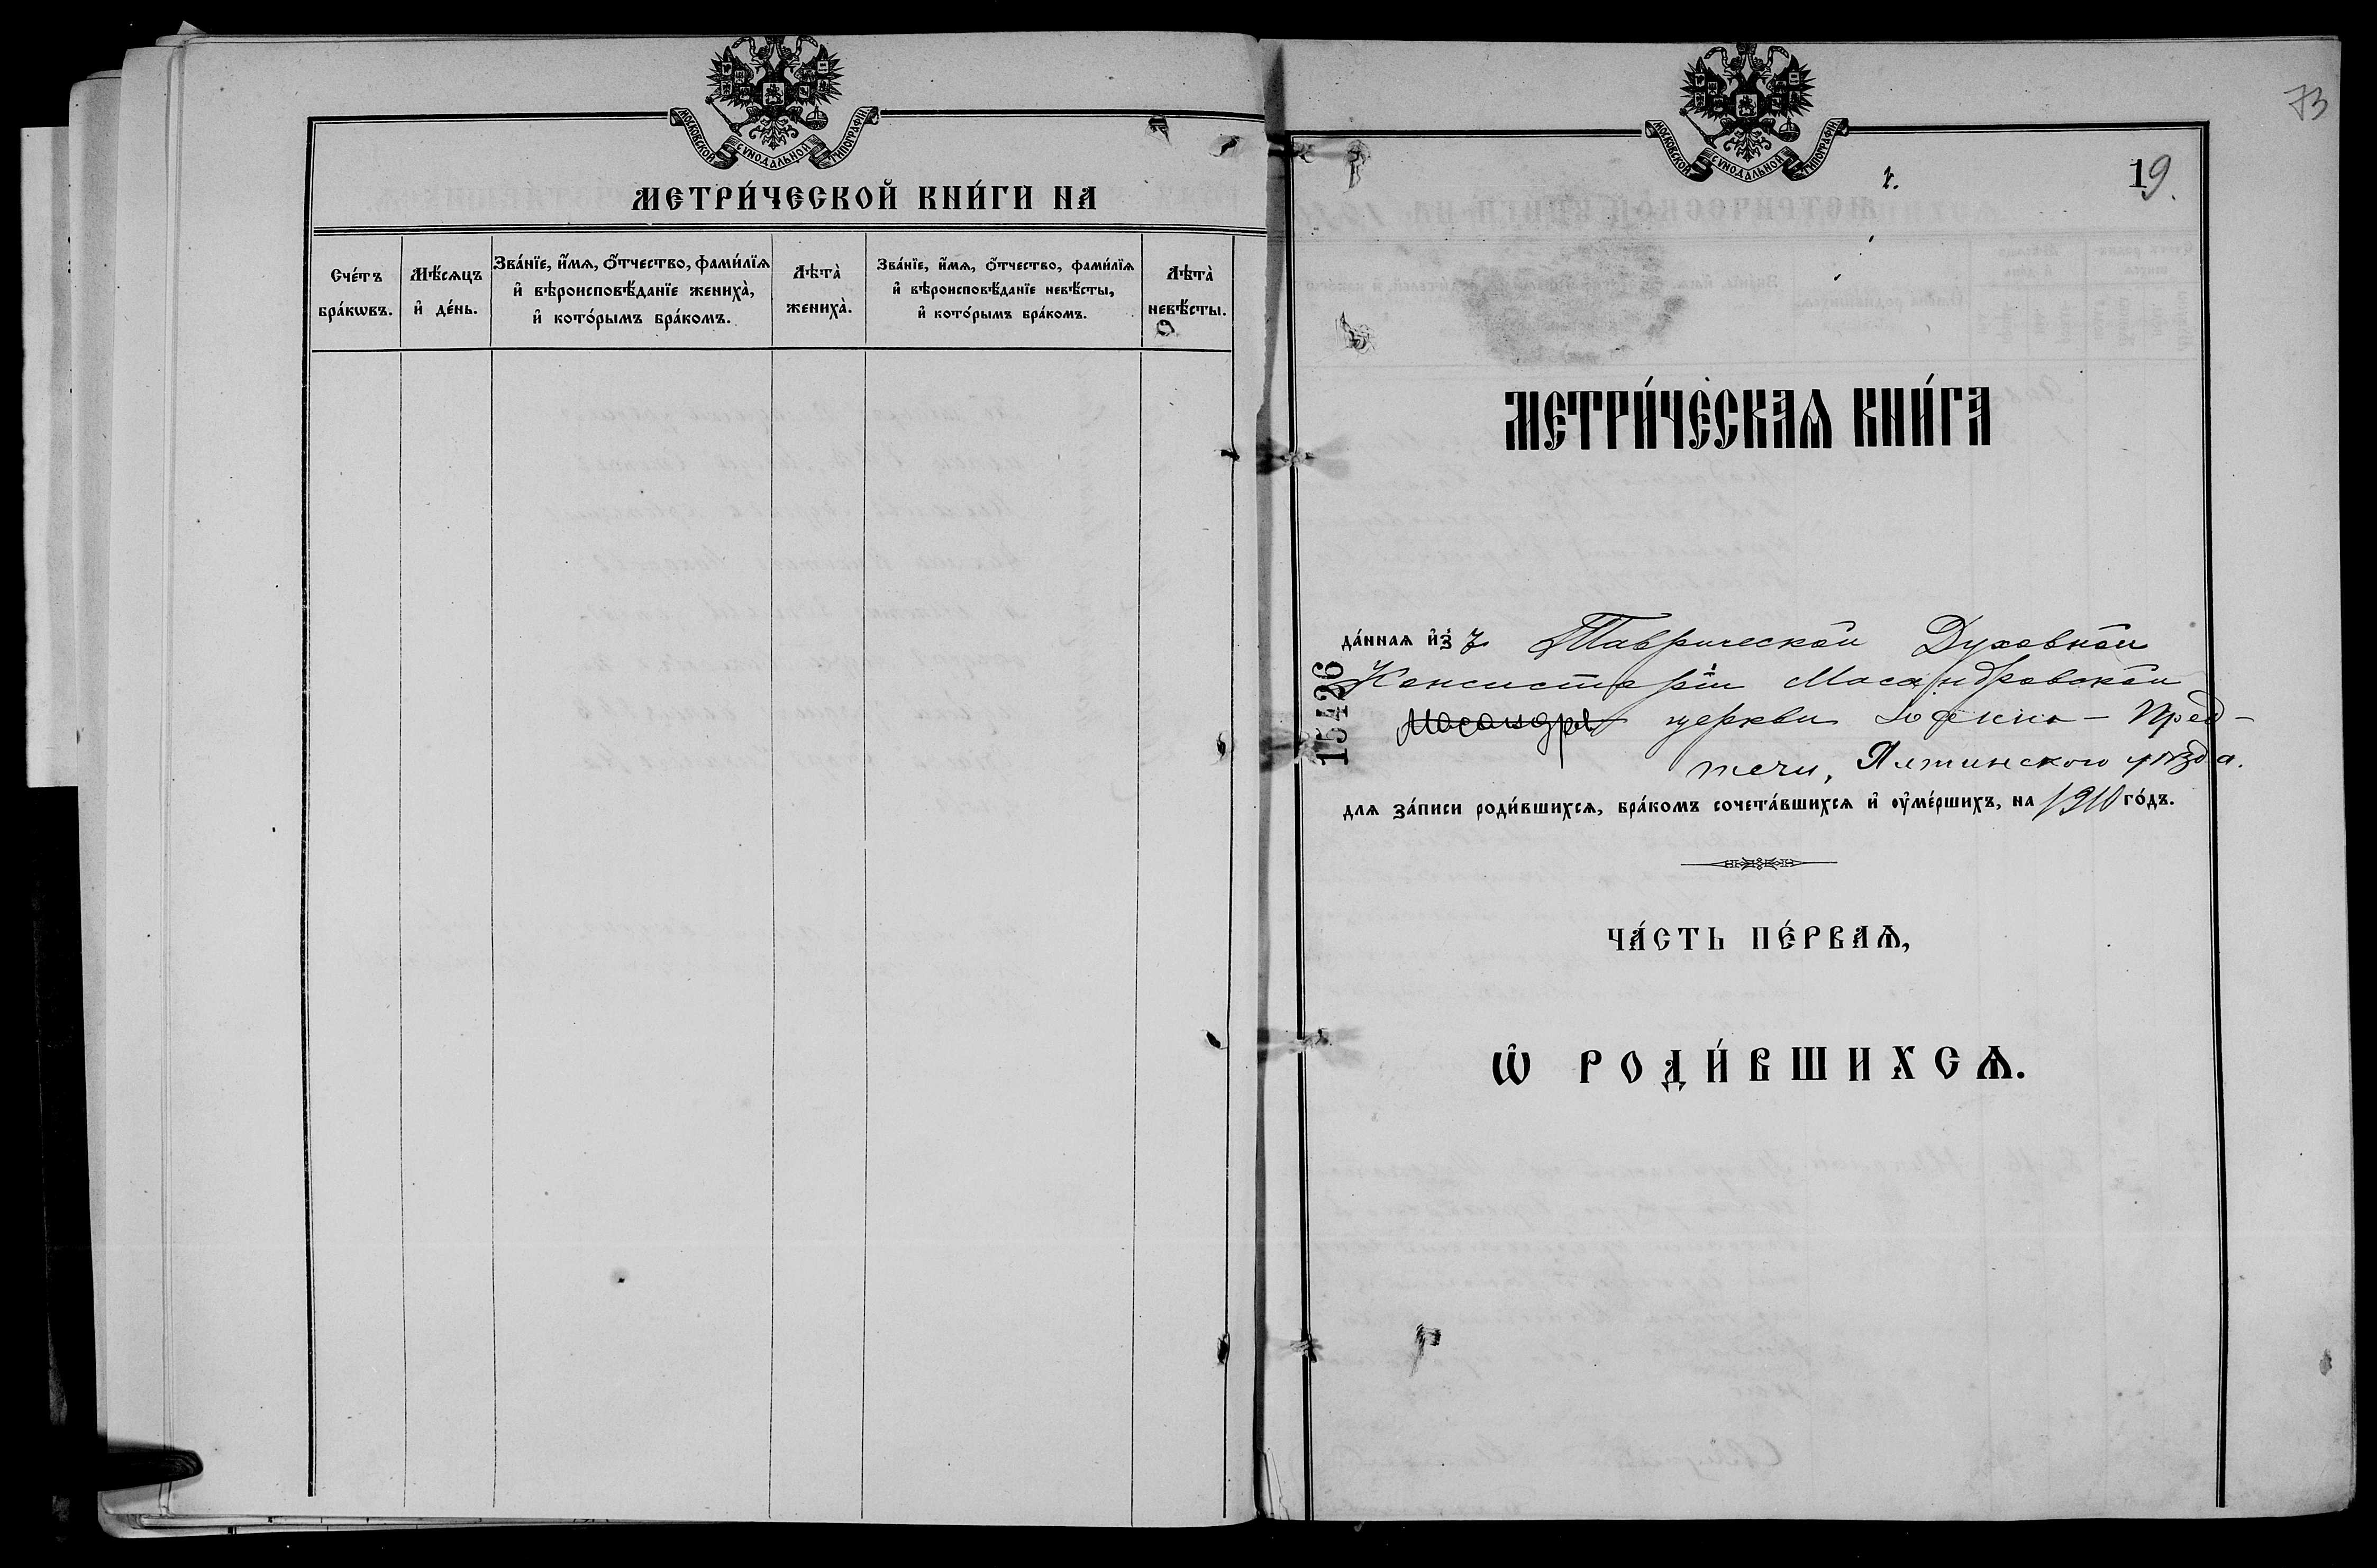 МОСКОВСКОЙ СѴНОДАЛЬНОЙ ТИПОГРАФІИ
МЕТРИ́ЧЕСКОЙ КНИ́ГИ НА
Сче́тъ бра́кѡвъ.
Мѣ́сяцъ и҆ де́нь.
Зва́нїе, и҆́мѧ, ѻ҆́тчество, фами́лїѧ
и҆ вѣроисповѣ́данїе жениха̀,
и҆ кото́рымъ бра́комъ.
Лѣта̀ жениха̀.
Зва́нїе, и҆́мѧ, ѻ҆́тчество, фами́лїѧ
и҆ вѣроисповѣ́данїе невѣ́сты,
и҆ кото́рымъ бра́комъ.
Лѣта̀ невѣ́сты.
73
МОСКОВСКОЙ СѴНОДАЛЬНОЙ ТИПОГРАФІИ
19.
МЕТРИ́ЧЕСКАѦ КНИ́ГА
да́ннаѧ и҆зъ Таврической Духовной
Консисторіи Масандровской
Масандр церкви Іоанно-Пред-
течи, Ялтинского уѣзда.
15426
длѧ за́писи роди́вшихсѧ, бра́комъ сочета́вшихсѧ и҆ ѹ҆ме́ршихъ, на 1910 го́дъ.
ЧА́СТЬ ПЕ́РВАѦ,
Ѡ҆ РОДИ́ВШИХСѦ.